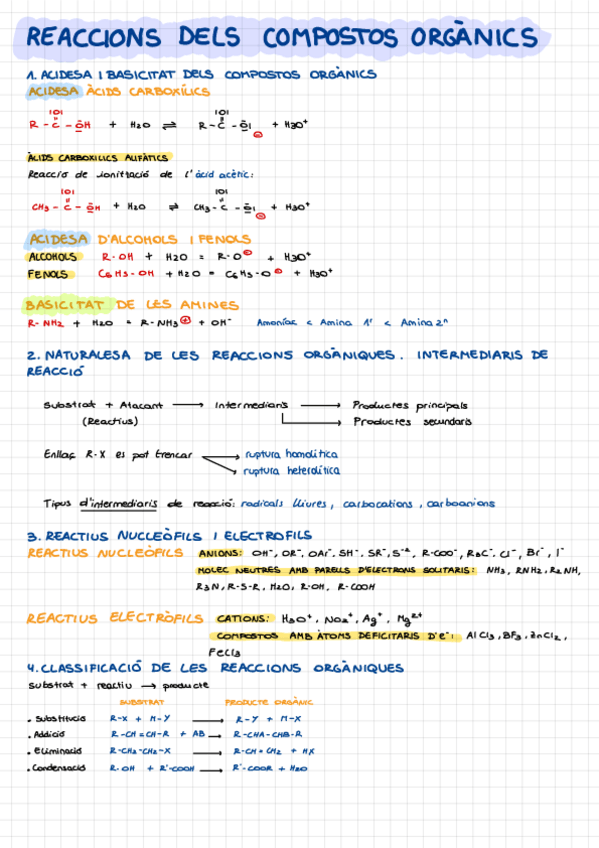 REACCIONS DELS COMPOSTOS ORGÀNICS
1. ACIDESA I BASICITAT DELS COMPOSTOS ORGÀNICS
ACIDESA ÀCIDS CARBOXÍLICS
R - C - OH + H2O ⇌ R - C - O| ⊖ + H3O+
ÀCIDS CARBOXILICS ALIFÀTICS
Reacció de ionització de l'àcid acètic:
CH3 - C - OH + H2O ⇌ CH3 - C - O| ⊖ + H3O+
ACIDESA D'ALCOHOLS I FENOLS
ALCOHOLS R-OH + H2O = R-O⊖ + H3O+
FENOLS C6H5-OH + H2O = C6H5-O⊖ + H3O+
BASICITAT DE LES AMINES
R-NH2 + H2O = R-NH3⊕ + OH- Amoníac < Amina 1ª < Amina 2ª
2. NATURALESA DE LES REACCIONS ORGÀNIQUES. INTERMEDIARIS DE
REACCIÓ
Substrat + Atacant → Intermediaris → Productes principals
(Reactius) → Productes secundaris
Enllaç R-X es pot trencar → ruptura homolítica
→ ruptura heterolítica
Tipus d'intermediaris de reacció: radicals lliures, carbocations, carboanions
3. REACTIUS NUCLEÒFILS I ELECTROFILS
REACTIUS NUCLEÒFILS ANIONS: OH-, OR-, OAr-, SH-, SR-, S-2, R-COO-, R3C-, Cl-, Br-, I-
MOLEC NEUTRES AMB PARELLS D'ELECTRONS SOLITARIS: NH3, RNH2, R2NH,
R3N, R-S-R, H2O, R-OH, R-COOH
REACTIUS ELECTRÒFILS CATIONS: H3O+, NO2+, Ag+, Mg2+
COMPOSTOS AMB ÀTOMS DEFICITARIS D'e-: AlCl3, BF3, ZnCl2,
FeCl3
4. CLASSIFICACIÓ DE LES REACCIONS ORGÀNIQUES
Substrat + reactiu → producte
SUBSTRAT PRODUCTE ORGÀNIC
. Substitució R-X + M-Y → R-Y + M-X
. Addició R-CH=CH-R + AB → R-CHA-CHB-R
. Eliminació R-CH2-CH2-X → R-CH=CH2 + HX
. Condensació R-OH + R'-COOH → R'-COOR + H2O